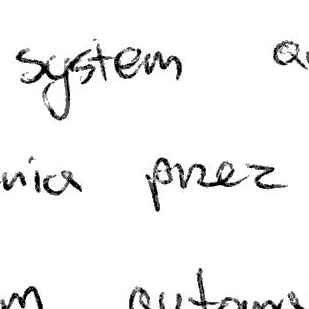 system a
nia przez
m autom